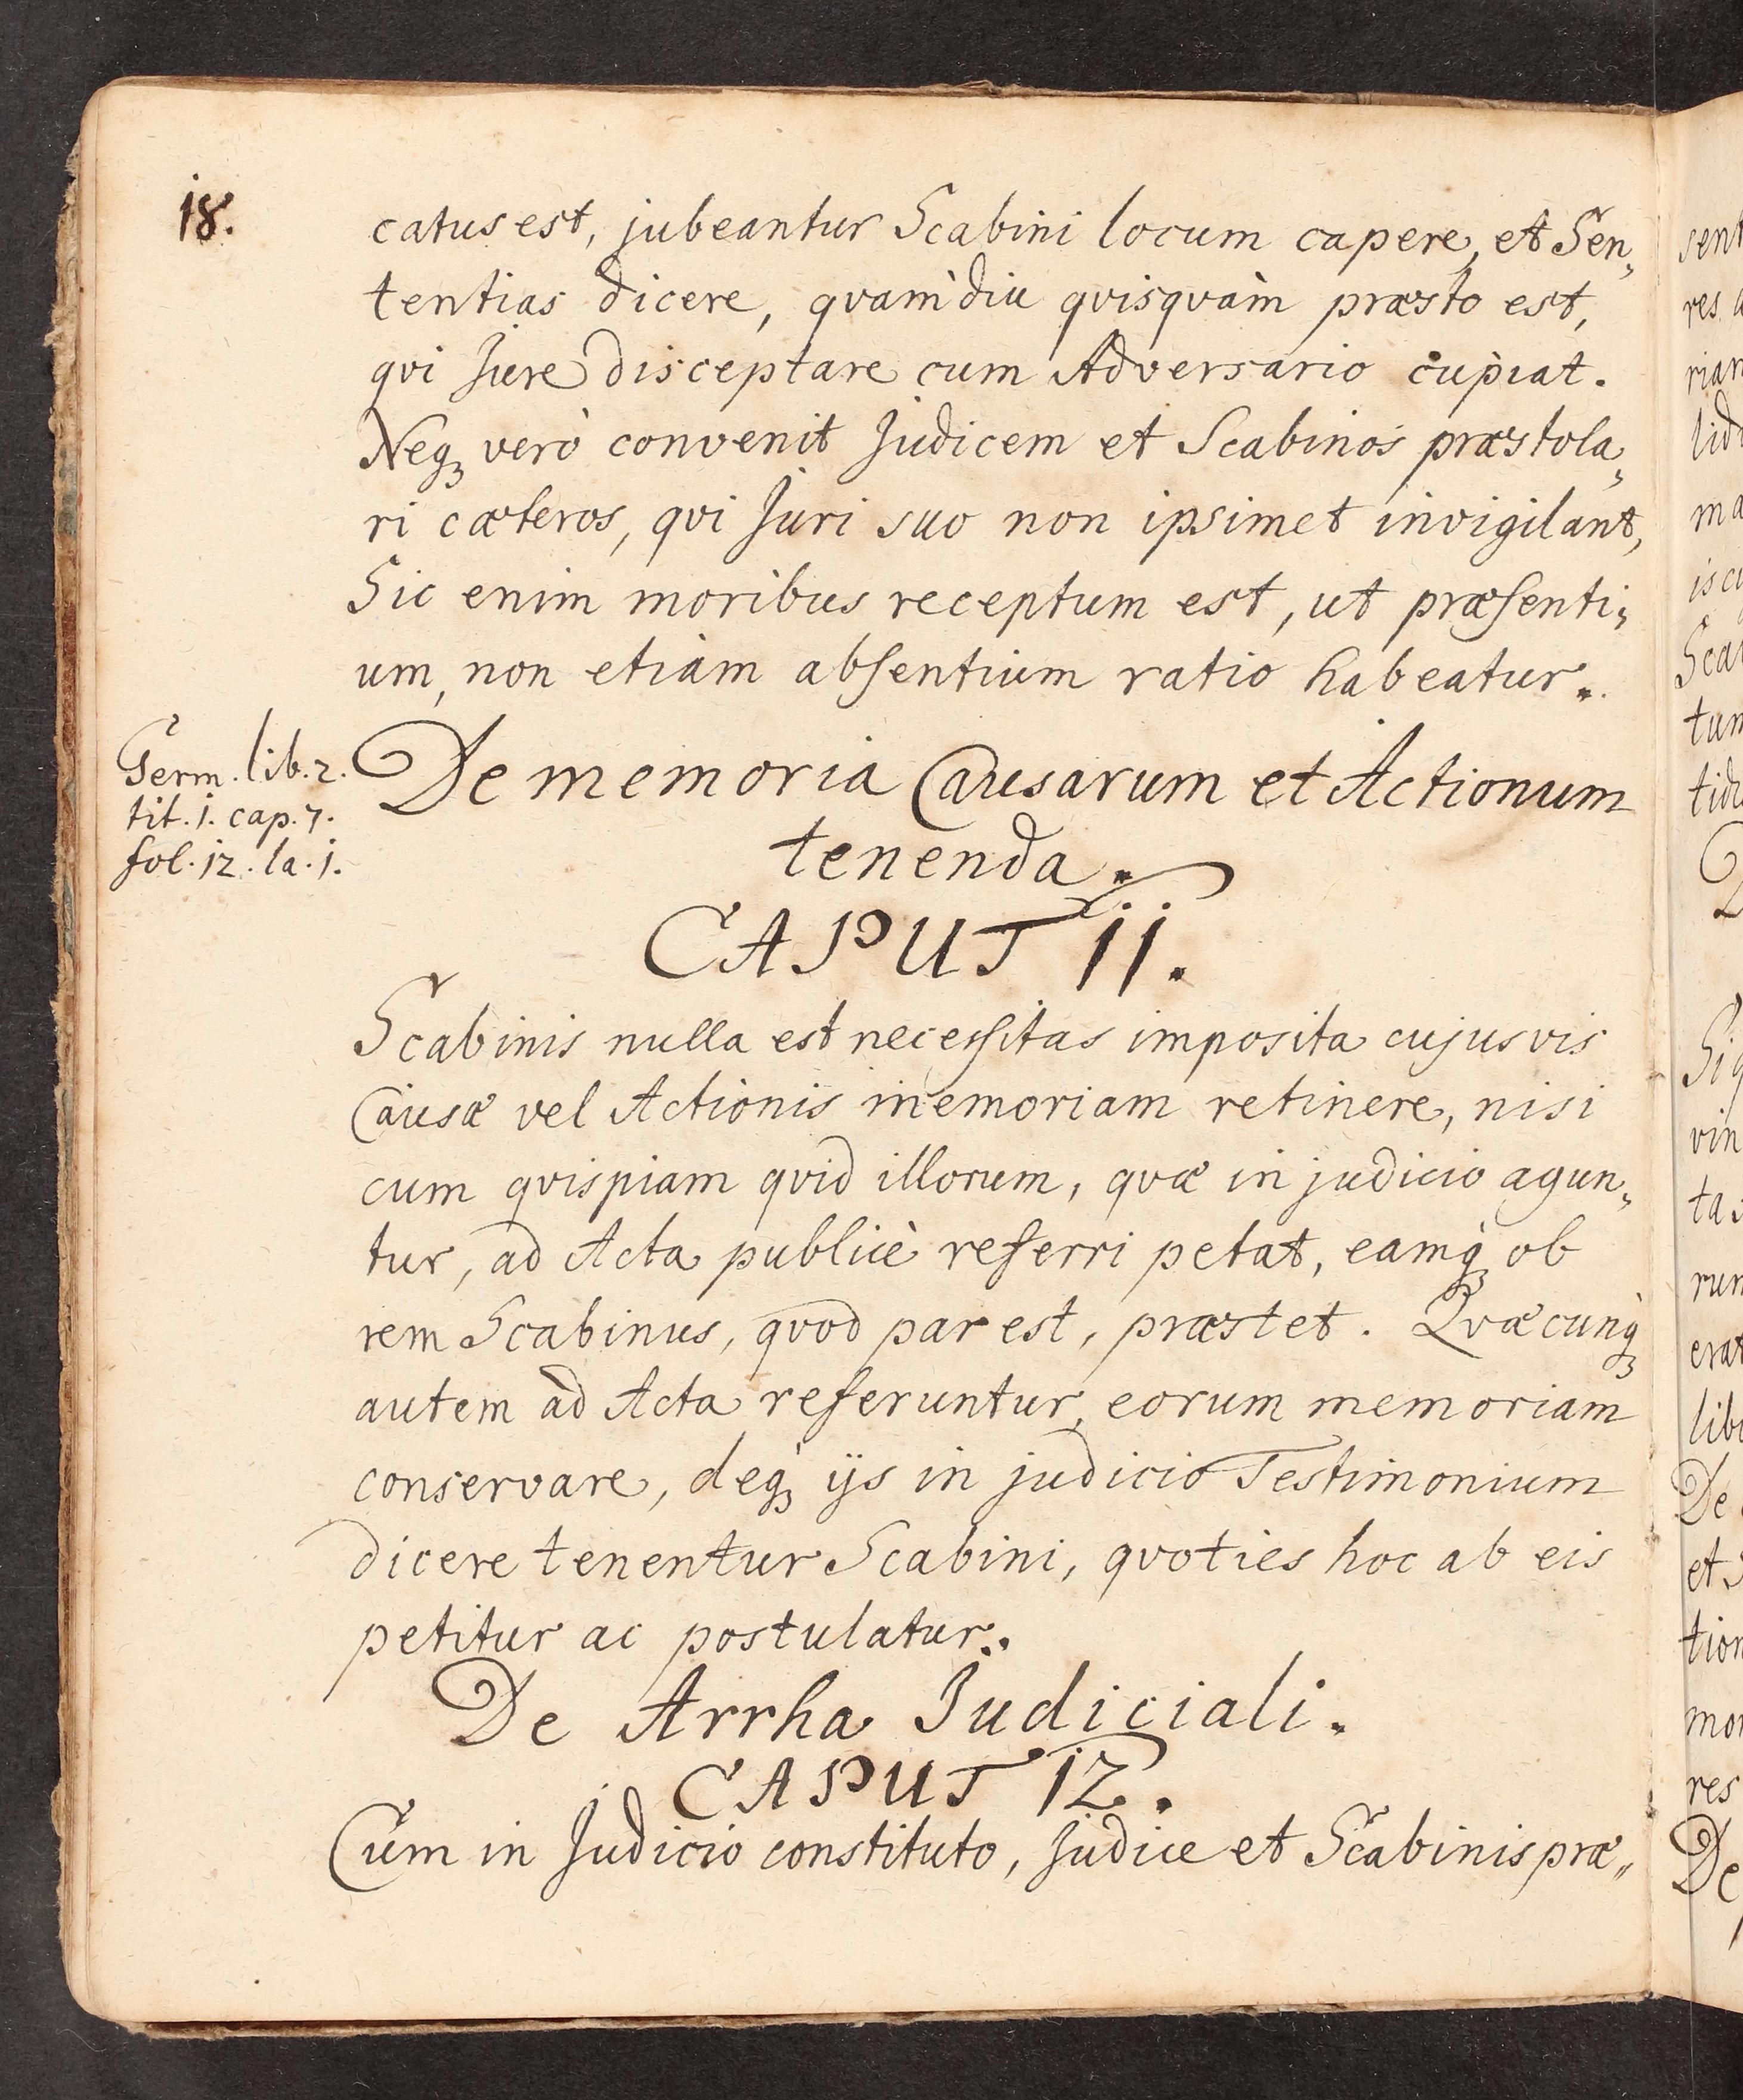 18.
catus est, jubeantur Scabini locum capere, et Sen„
tentias dicere, qvam̀diu qvisqvàm præsto est,
qvi Jure disceptare cum Adversario cupiat.
Neqꝫ verò convenit Judicem et Scabinos præstola„
ri cæteros, qvi Juri suo non ipsimet invigilant,
Sic enim moribus receptum est, ut præſenti„
um, non etiàm abſentium ratio habeatur.
Germ. lib. 2.
tit. 1. cap. 7.
fol. 12. la. 1.
De memoria Causarum et Actionum
tenenda.
CAPUT 11.
Scabinis nulla est neceſsitas imposita cujusvis
Causæ vel Actionis memoriam retinere, nisi
cum qvispiam qvid illorum, qvæ in judicio agun„
tur, ad Acta publicè referri petat, eamq̀ꝫ ob
rem Scabinus, qvod par est, præstet. Qvæcunq̀ꝫ
autem ad Acta referuntur, eorum memoriam
conservare, deq̀ꝫ ijs in judicio Testimonium
dicere tenentur Scabini, qvoties hoc ab eis
petitur ac postulatur.
De Arrha Judiciali.
CAPUT 12.
Cum in Judicio constituto, Judice et Scabinis præ„